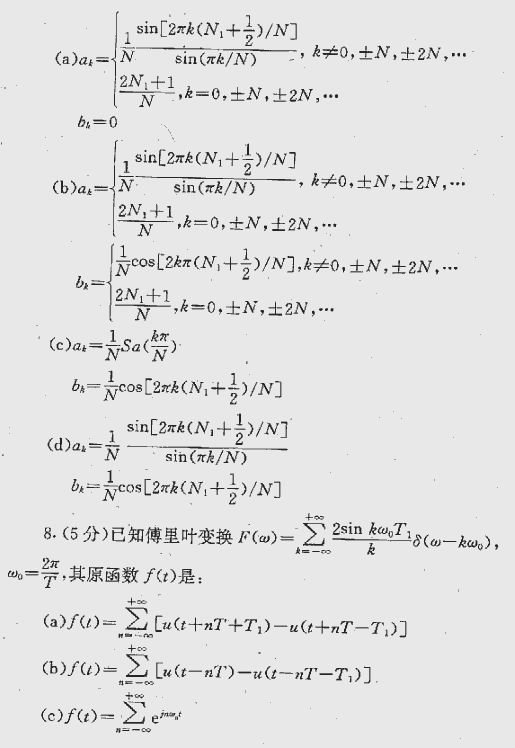 (a)aₖ={ 1/N sin[2πk(N₁+1/2)/N]/sin(πk/N), k≠0,±N,±2N,…
2N₁+1/N,k=0,±N,±2N,…
bₖ=0
(b)aₖ={ 1/N sin[2πk(N₁+1/2)/N]/sin(πk/N), k≠0,±N,±2N,…
2N₁+1/N,k=0,±N,±2N,…
bₖ={ 1/N cos[2kπ(N₁+1/2)/N],k≠0,±N,±2N,…
2N₁+1/N,k=0,±N,±2N,…
(c)aₖ=1/N Sa(kπ/N)
bₖ=1/N cos[2πk(N₁+1/2)/N]
(d)aₖ=1/N sin[2πk(N₁+1/2)/N]/sin(πk/N)
bₖ=1/N cos[2πk(N₁+1/2)/N]
8.(5分)已知傅里叶变换 F(ω)=∑_{k=-∞}^{+∞} 2sin kω₀T₁/k δ(ω-kω₀),
ω₀=2π/T,其原函数 f(t)是:
(a)f(t)=∑_{n=-∞}^{+∞}[u(t+nT+T₁)-u(t+nT-T₁)]
(b)f(t)=∑_{n=-∞}^{+∞}[u(t-nT)-u(t-nT-T₁)]
(c)f(t)=∑_{n=-∞}^{+∞} e^{jnω₀t}